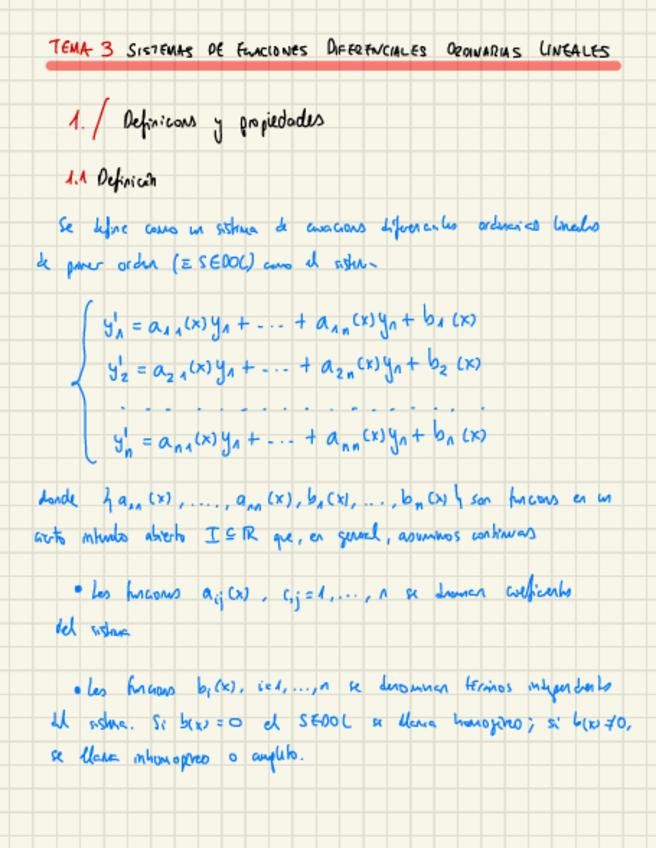 TEMA 3 SISTEMAS DE ECUACIONES DIFERENCIALES ORDINARIAS LINEALES
1./ Definicions y propiedades
1.1 Definición
Se define como un sistema de ecuacions diferenciales ordinarias lineales
de primer orden (≡ SEDOL) como el sistema
y'₁ = a₁₁(x)y₁ + ... + a₁ₙ(x)yₙ + b₁(x)
y'₂ = a₂₁(x)y₁ + ... + a₂ₙ(x)yₙ + b₂(x)
. . . . . . . . . . . . . . .
y'ₙ = aₙ₁(x)y₁ + ... + aₙₙ(x)yₙ + bₙ(x)
donde {a₁₁(x), ....., aₙₙ(x), b₁(x), ..., bₙ(x)} son funcions en un
cierto intervalo abierto I ⊆ ℝ que, en general, asumimos continuas
• Las funciones aᵢⱼ(x), i,j=1,...,n se llaman coeficientes
del sistema
• Las funcions bᵢ(x), i=1,...,n se denominan términos independientes
del sistema. Si b(x)=0 el SEDOL se llama homogéneo; si b(x)≠0,
se llama inhomogéneo o completo.